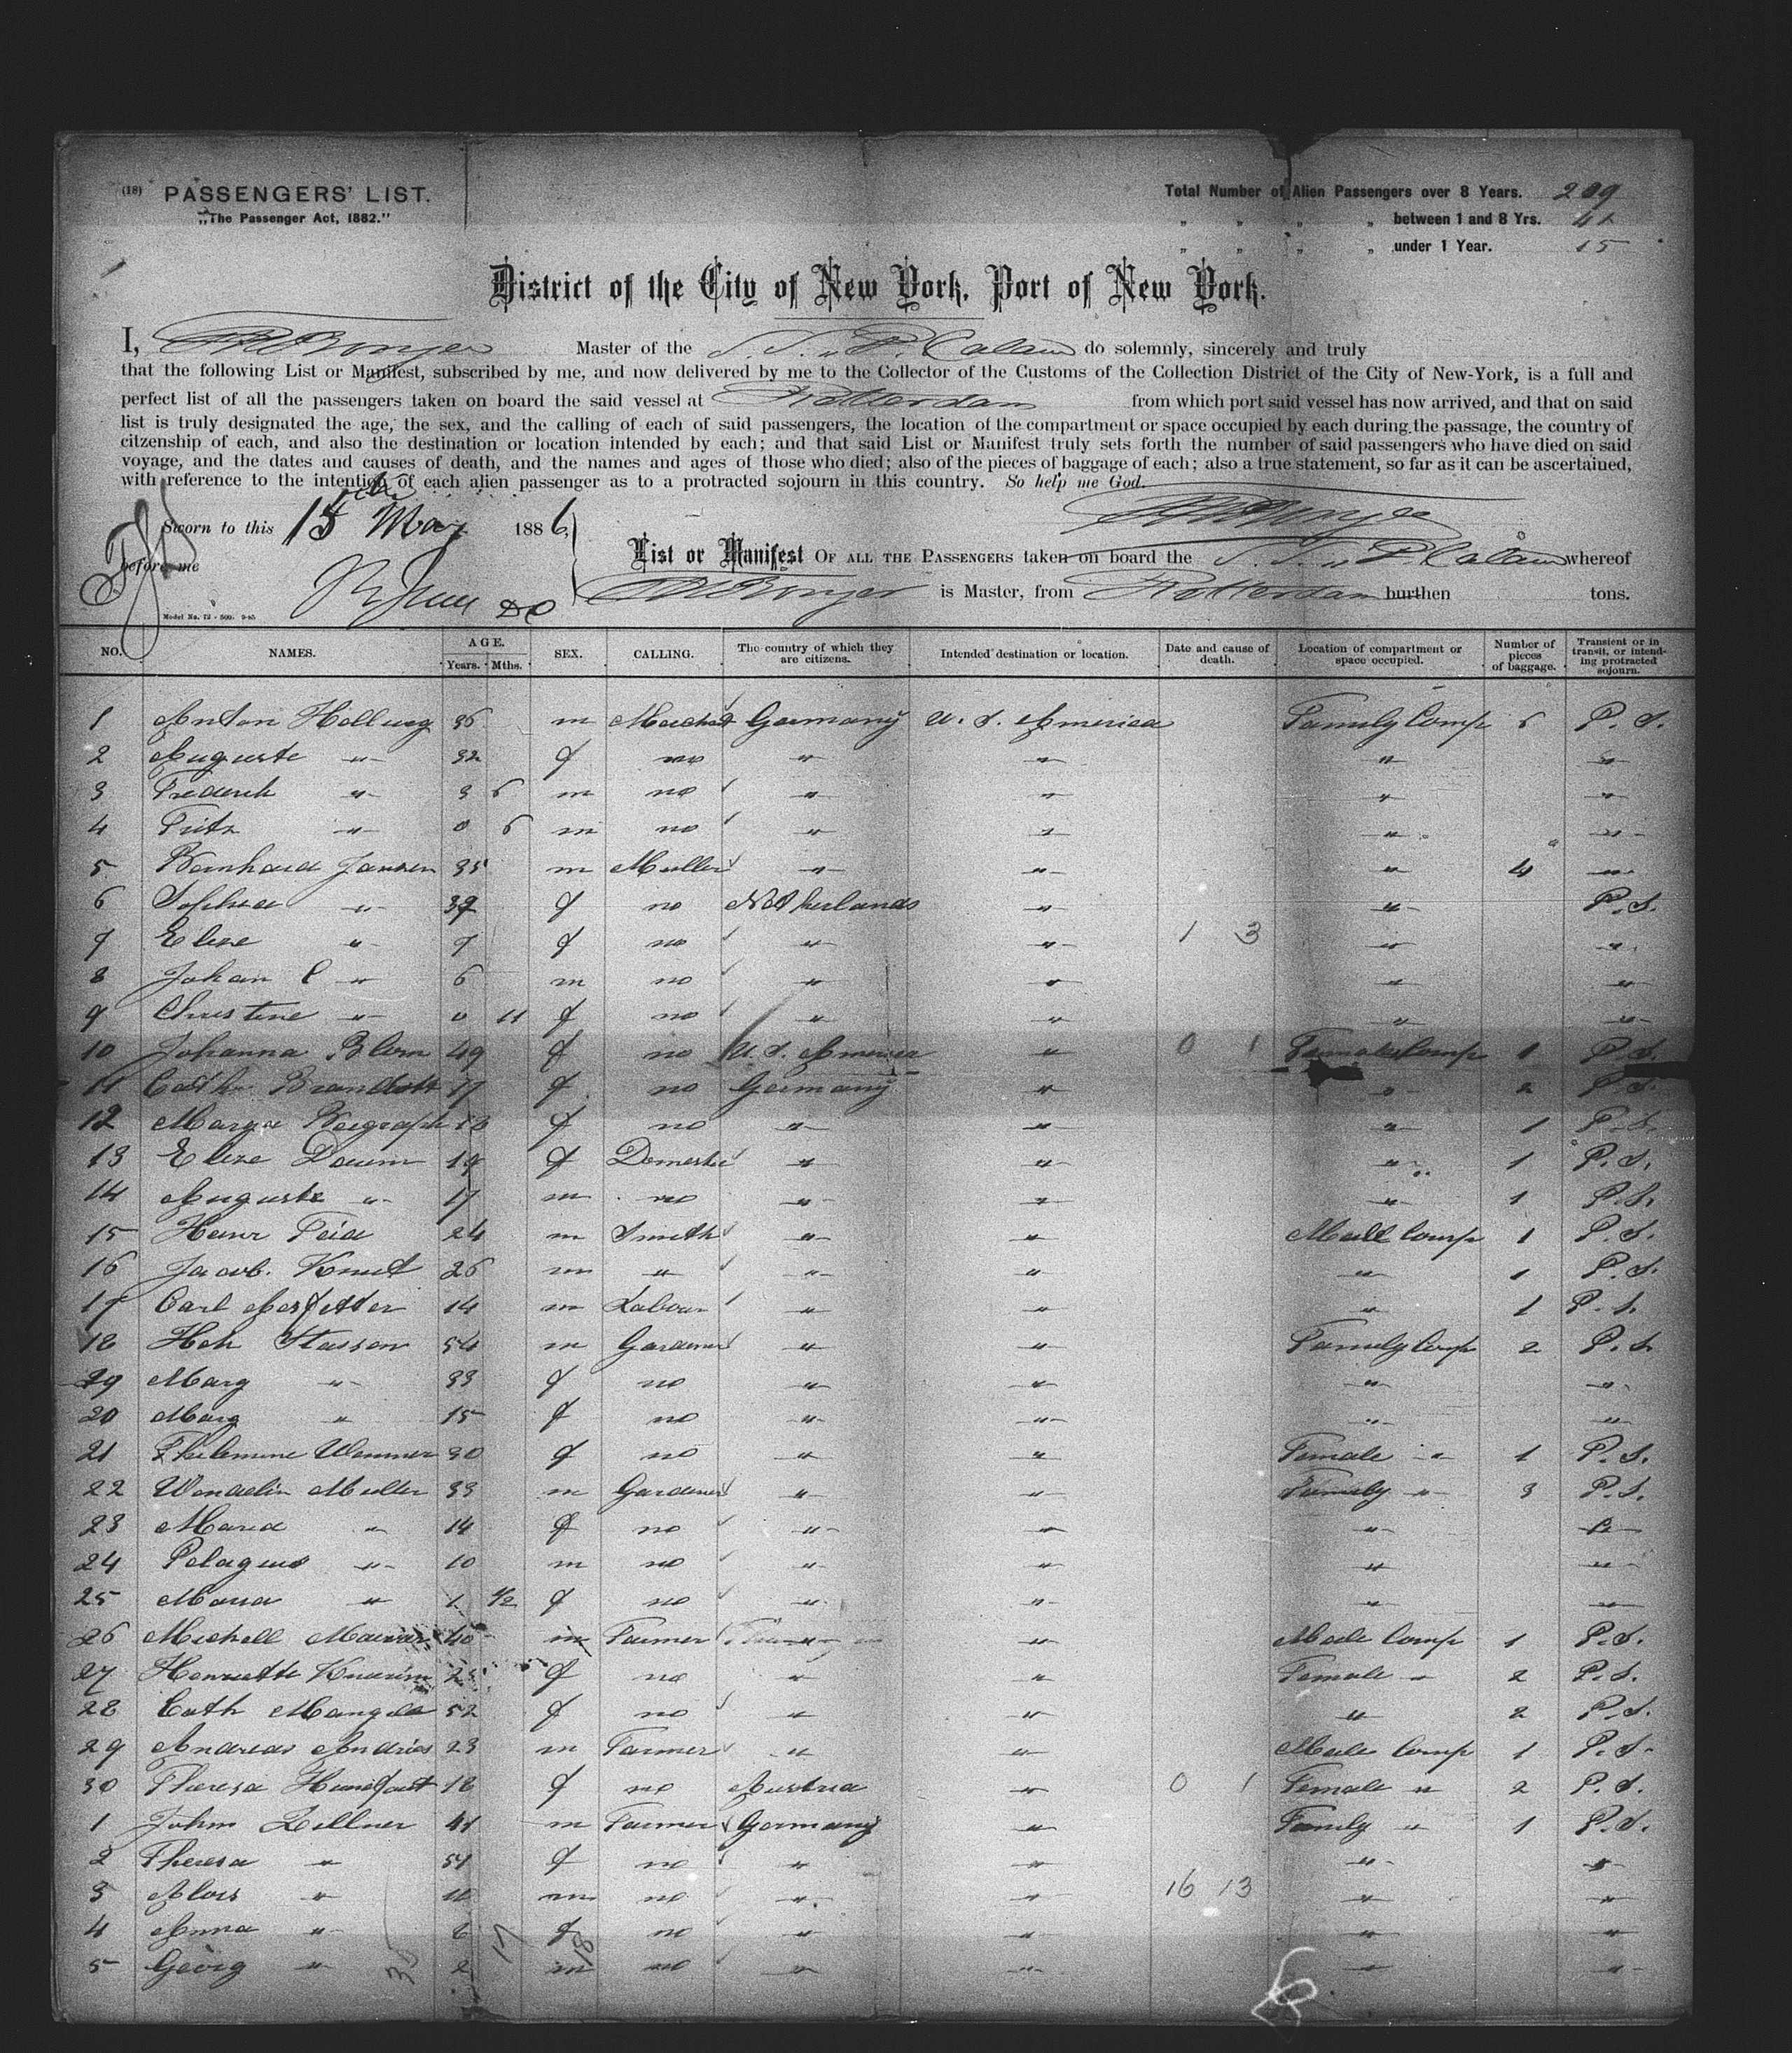 (18) PASSENGERS' LIST.
„The Passenger Act, 1882."
Total Number of Alien Passengers over 8 Years. 209
„ „ „ „ between 1 and 8 Yrs. 41
„ „ „ „ under 1 Year. 15
District of the City of New York, Port of New York.
I, Master of the S.S. „P. Caland do solemnly, sincerely and truly
that the following List or Manifest, subscribed by me, and now delivered by me to the Collector of the Customs of the Collection District of the City of New-York, is a full and
perfect list of all the passengers taken on board the said vessel at Rotterdam from which port said vessel has now arrived, and that on said
list is truly designated the age, the sex, and the calling of each of said passengers, the location of the compartment or space occupied by each during the passage, the country of
citzenship of each, and also the destination or location intended by each; and that said List or Manifest truly sets forth the number of said passengers who have died on said
voyage, and the dates and causes of death, and the names and ages of those who died; also of the pieces of baggage of each; also a true statement, so far as it can be ascertained,
with reference to the intention of each alien passenger as to a protracted sojourn in this country. So help me God.
Sworn to this 15 the May 1886,
before me
List or Manifest OF ALL THE PASSENGERS taken on board the S.S. „P. Caland whereof
is Master, from Rotterdam burthen tons.
Model No. 12 - 500. 9-85
NO. NAMES. AGE. Years. Mths. SEX. CALLING. The country of which they are citizens. Intended destination or location. Date and cause of death. Location of compartment or space occupied. Number of pieces of baggage. Transient or in transit, or intending protracted sojourn.
1 Anton Hellweg 36 m Germany U. S. America Family Comp 5 P. S.
2 Auguste " 32 f no " " " "
3 Frederik " 3 6 m no " " " "
4 Fritz " 0 6 m no " " " "
5 Bernhard Jansen 35 m Muller " " " 4 "
6 Sophia " 39 f no Netherlands " " P. S.
7 Elise " 7 f no " " 1 3 " "
8 Johan C " 6 m no " " " "
9 Christine " 0 11 f no " " " "
10 Johanna Blom 49 f no U. S. America " 0 1 Female Comp 1 P. S.
11 Cath 17 f no Germany " " 2 P. S.
12 18 f no " " " 1 P. S.
13 Elise Daum 19 f Domestic " " " 1 P. S.
14 Auguste " 17 m no " " " 1 P. S.
15 Feid 24 m Smith " " Male Comp 1 P. S.
16 Jacob 26 m " " " " 1 P. S.
17 Carl 14 m Labour " " " 1 P. S.
18 54 m Gardener " " Family Comp 2 P. S.
19 Marg " 33 f no " " " "
20 Marg " 15 f no " " " "
21 30 f no " " Female " 1 P. S.
22 Wendelin Muller 33 m Gardener " " Family " 3 P. S.
23 Maria " 14 f no " " " "
24 Pelagius " 10 m no " " " "
25 Maria " 1 1/2 f no " " " "
26 40 m Farmer " Male Comp 1 P. S.
27 Henriette f no " " Female " 2 P. S.
28 Cath 52 f no " " " 2 P. S.
29 Andreas Andries 23 m Farmer " " Male Comp 1 P. S.
30 Theresa 18 f no Austria " 0 1 Female " 2 P. S.
1 Johm Zellner 41 m Farmer Germany " Family " 1 P. S.
2 Theresa " 51 f no " " " "
3 Alois " m no " " 16 13 " "
4 Anna " 6 f no " " " "
5 Georg " 2 m no " " " "
17 18